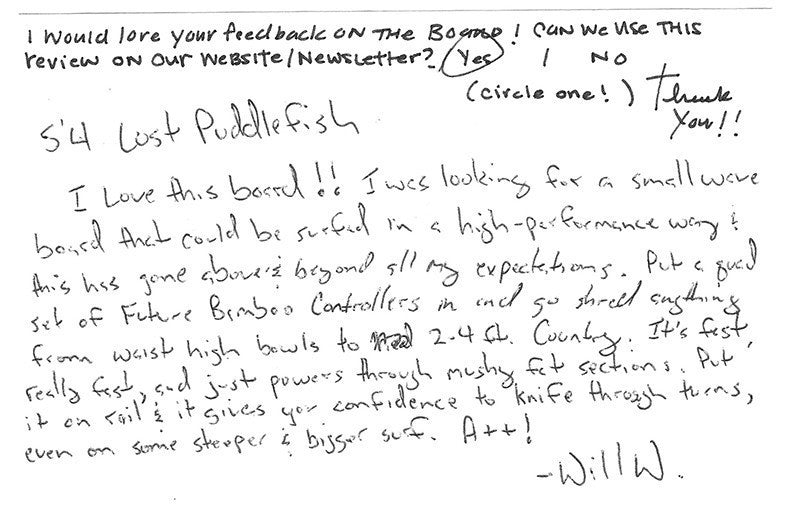 I would love your feedback on the Board! Can we use this
review on our website/Newsletter? Yes / No
(circle one!) Thank
You!!
5'4 Lost Puddlefish
I Love this board!! I was looking for a small wave
board that could be surfed in a high-performance way &
this has gone above & beyond all my expectations. Put a quad
set of Future Bamboo Controllers in and go shred anything
from waist high bowls to 2-4 ft. Country. It's fast,
really fast, and just powers through mushy fat sections. Put
it on rail & it gives you confidence to knife through turns,
even on some steeper & bigger surf. A++!
-Will W.